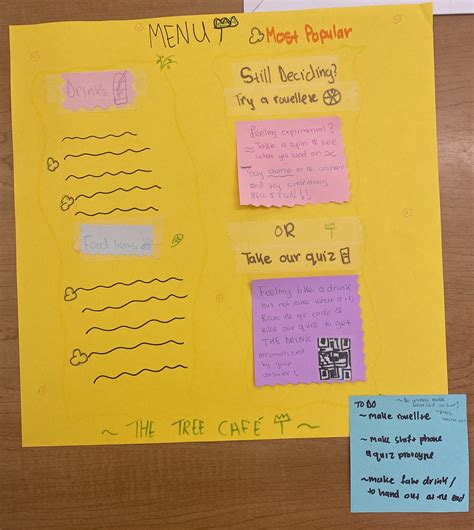 MENU
Most Popular
Drinks
Food Items
Still Deciding?
Try a rouellete
Feeling expirmental?
~ Take a spin & see
what you land on
~ Say chance to the cashier
and try something
NEW & FUN!!
OR
Take our quiz
Feeling like a drink
but not sure what it is
Scan the qr code &
take our quiz to get
THE DRINK
personalized
by your
answers!
~ THE TREE CAFÉ ~
TO DO
~ make rouellete
~ make shift phone
& quiz prototype
~ make fake drink /
to hand out at the end